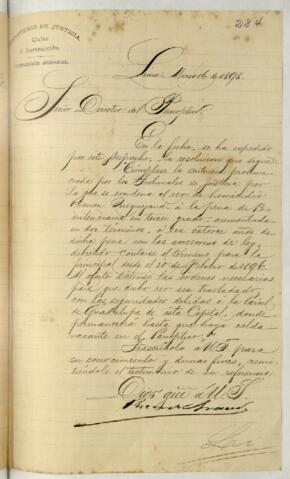 284
MINISTERIO DE JUSTICIA,
Culto
é Instrucción
DIRECCIÓN GENERAL
Lima, Marzo 6 de 1898.
Señor Director del Panóptico.
En la fecha, se ha expedido
por este despacho, la resolución que sigue:
"Cúmplase la sentencia pronun-
ciada por los Tribunales de justicia por
la que se condena al reo de homicidio
Ramon a la pena de Pe-
nitenciaria en tercer grado, aumentada
en dos términos, ó sea catorce años de
dicha pena con las accesorias de ley,
debiendo contarse el término para la
principal desde el 20 de Febrero de 1896.
Al efecto dictense las órdenes necesarias
para que dicho reo sea trasladado
con las seguridades debidas á la Cárcel
de Guadalupe de esta Capital, donde
permanecerá hasta que haya celda
vacante en el Panóptico".
Trascríbola á US. para
su conocimiento y demas fines, remi-
tiéndole el testimonio de su referencia.
Dios gũe á US.